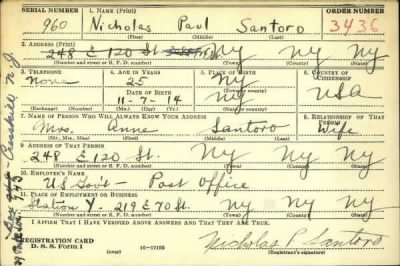 SERIAL NUMBER 1. NAME (Print) ORDER NUMBER
960 Nicholas Paul Santoro 3436
(First) (Middle) (Last)
2. ADDRESS (Print)
248 E 120 St. NY NY NY
(Number and street or R. F. D. number) (Town) (County) (State)
3. TELEPHONE 4. AGE IN YEARS 5. PLACE OF BIRTH 6. COUNTRY OF CITIZENSHIP
None 25 NY
DATE OF BIRTH (Town or county)
11-7-14 NY USA
(Exchange) (Number) (Mo.) (Day) (Yr.) (State or country)
7. NAME OF PERSON WHO WILL ALWAYS KNOW YOUR ADDRESS 8. RELATIONSHIP OF THAT PERSON
Mrs. Anne Santoro Wife
(Mr., Mrs., Miss) (First) (Middle) (Last)
9. ADDRESS OF THAT PERSON
248 E 120 St. NY NY NY
(Number and street or R. F. D. number) (Town) (County) (State)
10. EMPLOYER'S NAME
US Gov't Post Office
11. PLACE OF EMPLOYMENT OR BUSINESS
Station Y - 219 E 70 St. NY NY NY
(Number and street or R. F. D. number) (Town) (County) (State)
I AFFIRM THAT I HAVE VERIFIED ABOVE ANSWERS AND THAT THEY ARE TRUE.
REGISTRATION CARD
D. S. S. Form 1 (over) 16-17105 Nicholas P. Santoro
(Registrant's signature)
Cresskill N.J.